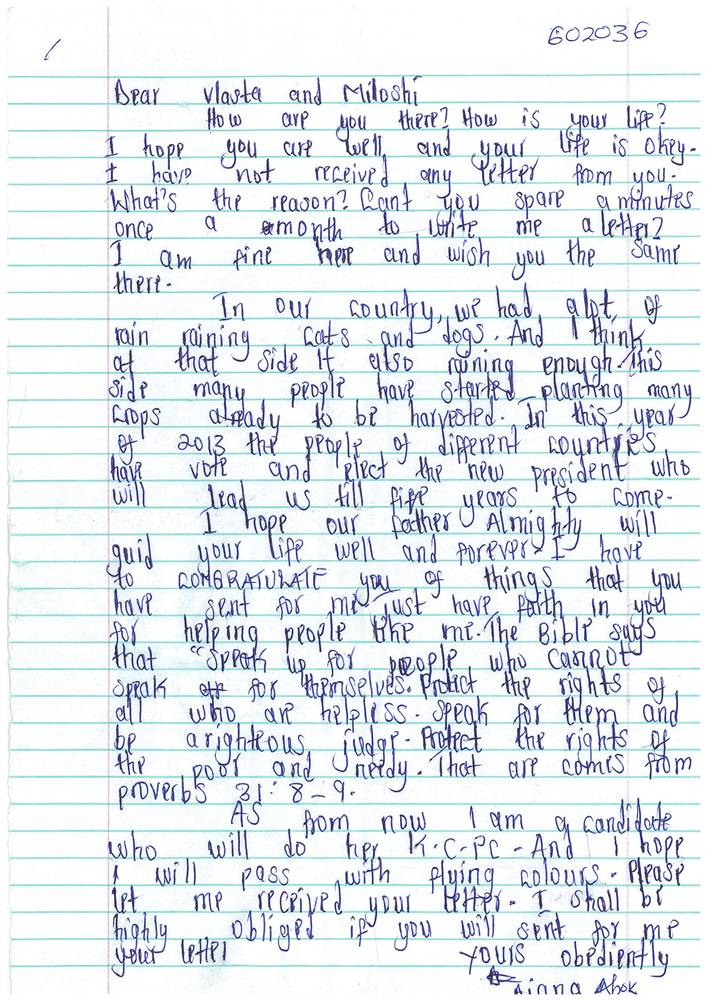 602036
Dear Vlasta and Miloshi
How are you there? How is your life?
I hope you are well and your life is okey.
I have not received any letter from you.
What's the reason? Cant you spare a minutes
once a month to write me a letter?
I am fine here and wish you the same
there.
In our country, we had a lot of
rain raining cats and dogs. And I think
at that side it also raining enough. This
side many people have started planting many
crops already to be harvested. In this year
of 2013 the people of different countries
have vote and elect the new president who
will lead us till five years to come.
I hope our father Almighty will
guid your life well and forever. I have
to CONGRATULATE you of things that you
have sent for me just have faith in you
for helping people like me. The Bible says
that "speak up for people who cannot
speak for themselves. Protect the rights of
all who are helpless. speak for them and
be a righteous judge. Protect the rights of
the poor and needy. That are comes from
proverbs 31:8-9.
As from now I am a candidate
who will do her K.C.PC. And I hope
I will pass with flying colours. Please
let me received your letter. I shall be
highly obliged if you will sent for me
your letter yours obediently